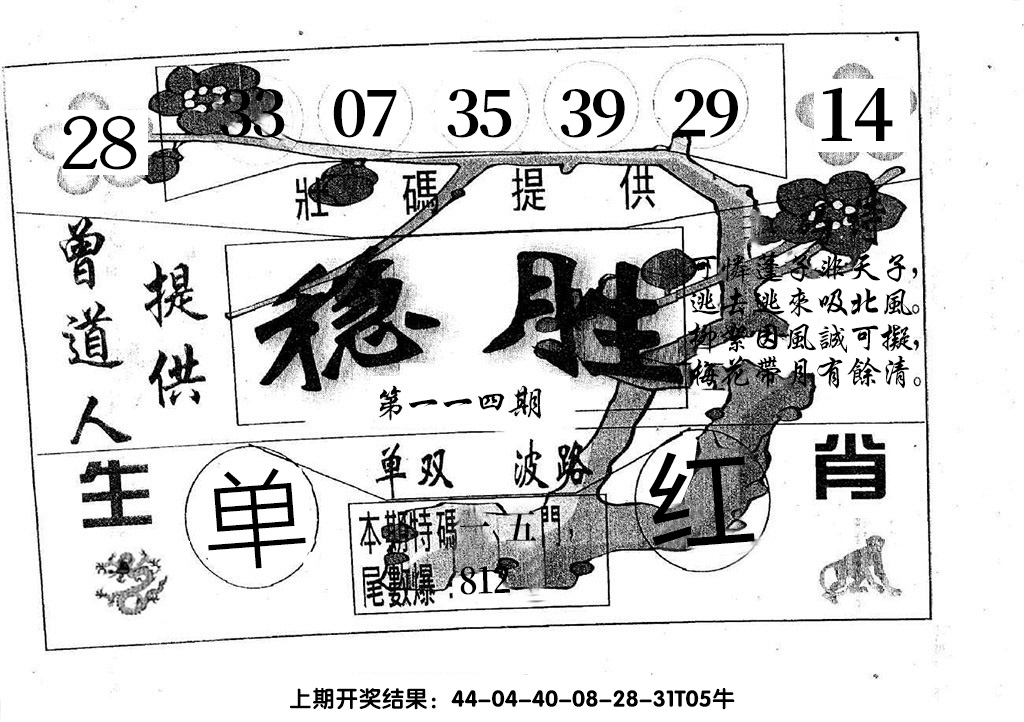 28 33 07 35 39 29 14
壯碼提供
特
曾道人
提供
稳胜
第一一四期
可憐蓮子非天子，
逃去逃來吸北風。
柳絮因風誠可擬，
梅花帶月有餘清。
单双 波路
生肖
单
红
本期特碼一、五門，
尾數爆：812
上期开奖结果：44-04-40-08-28-31T05牛